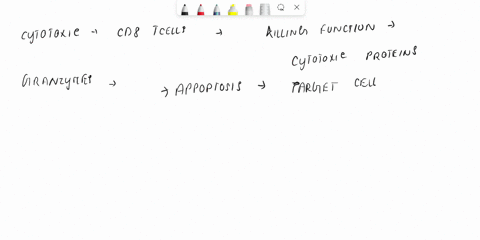 CYTOTOXIC → CD8 TCELLS → KILLING FUNCTION →
CYTOTOXIC PROTEINS
GRANZYMES → → APPOPTOSIS → TARGET CELL